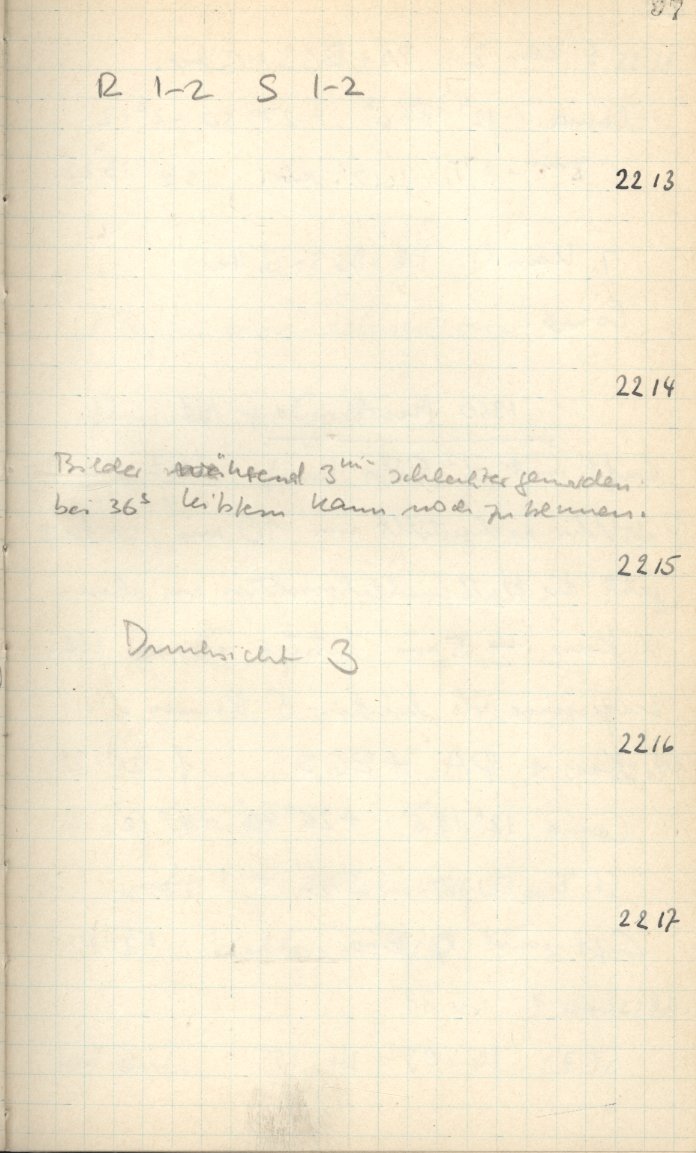 87
R 1-2 S 1-2
2213
2214
Bilder während 3ᵐ schlechter geworden
bei 36ˢ letztem kaum noch zu trennen.
2215
Durchsicht 3
2216
2217